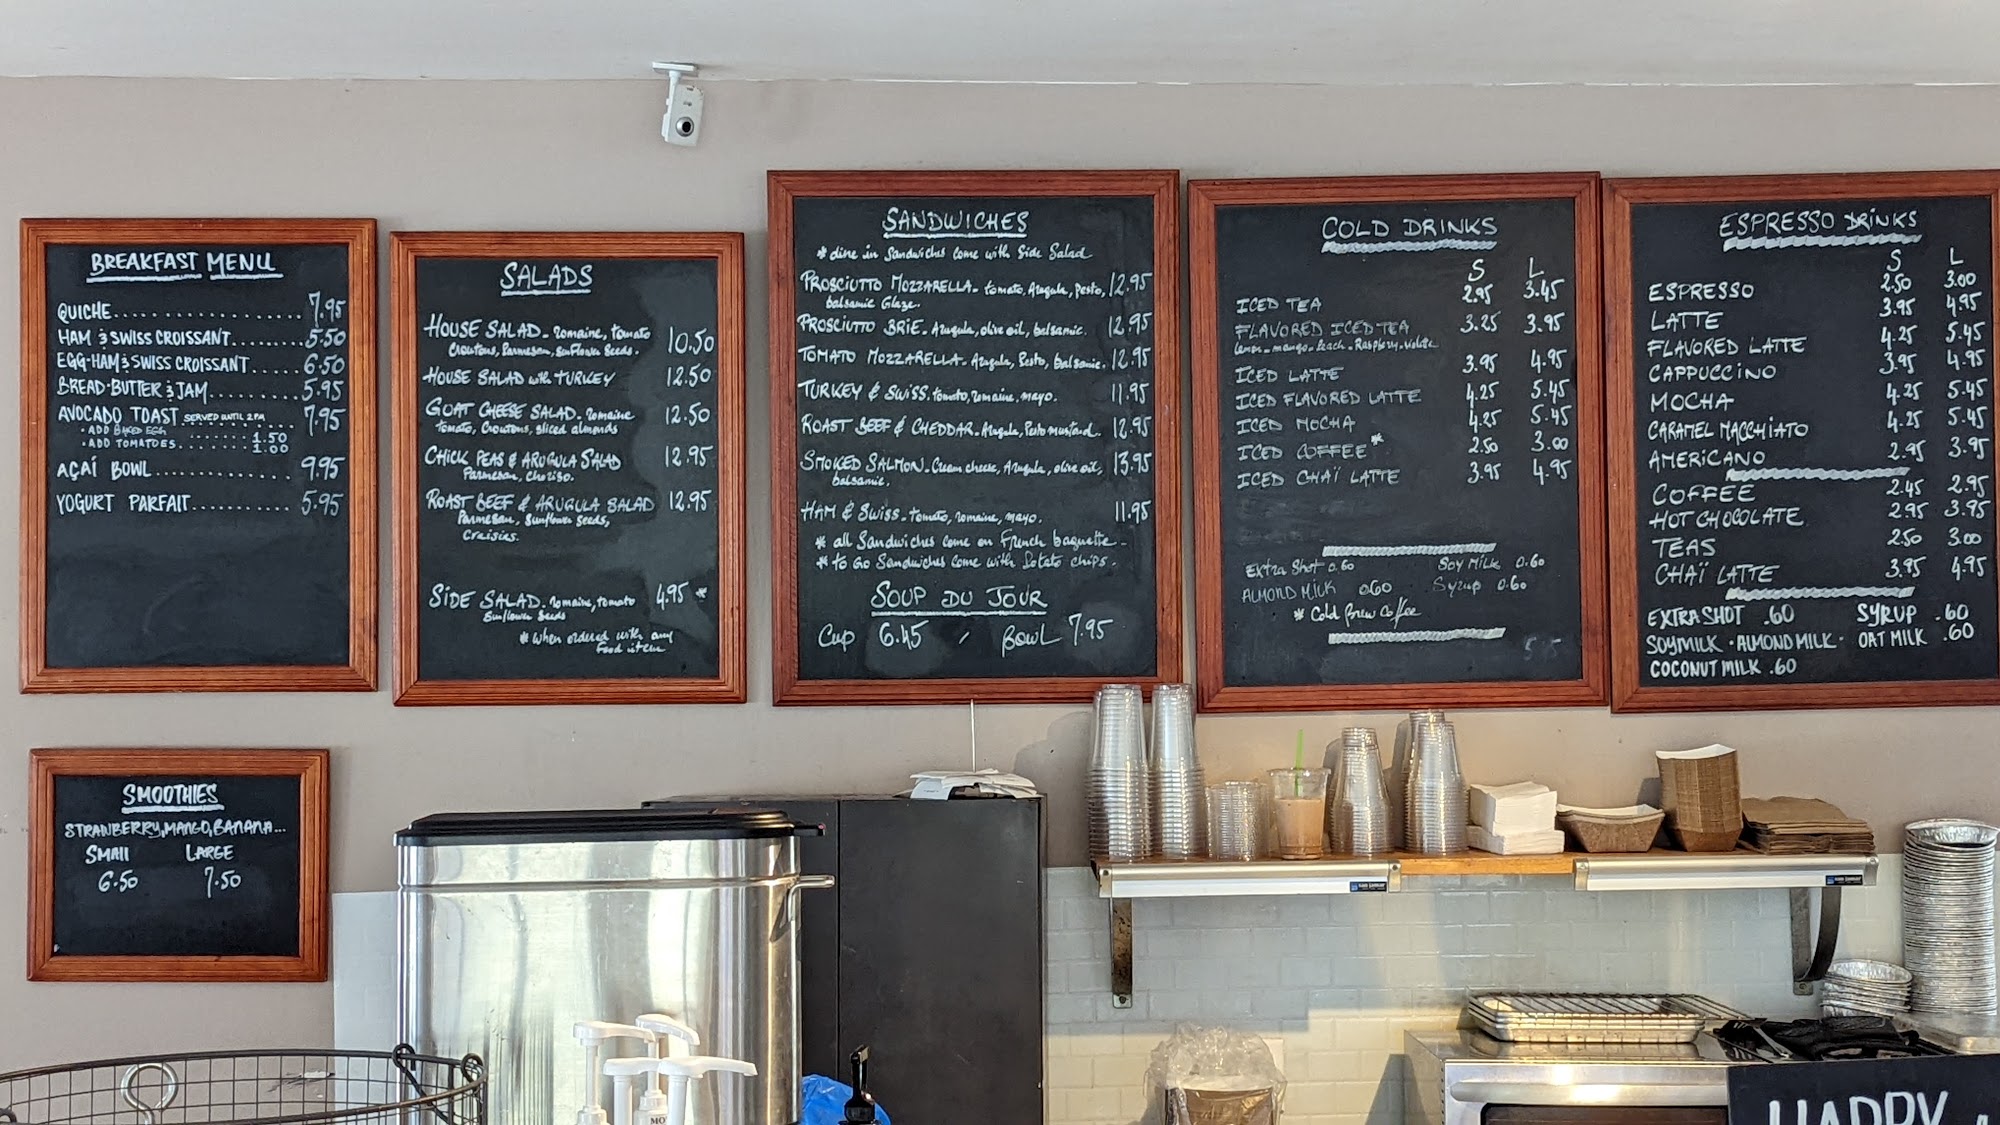 BREAKFAST MENU
QUICHE.................... 7.95
HAM & SWISS CROISSANT......... 5.50
EGG-HAM & SWISS CROISSANT..... 6.50
BREAD-BUTTER & JAM........ 5.95
AVOCADO TOAST SERVED UNTIL 2PM ... 7.95
• ADD BAKED EGG ....... 1.50
• ADD TOMATOES........ 1.00
AÇAÍ BOWL............. 9.95
YOGURT PARFAIT.......... 5.95
SMOOTHIES
STRAWBERRY, MANGO, BANANA...
SMALL LARGE
6.50 7.50
SALADS
HOUSE SALAD - romaine, tomato 10.50
Croutons, Parmesan, Sunflower Seeds.
HOUSE SALAD with TURKEY 12.50
GOAT CHEESE SALAD - romaine 12.50
tomato, Croutons, sliced almonds
CHICK PEAS & ARUGULA SALAD 12.95
Parmesan, Chorizo.
ROAST BEEF & ARUGULA SALAD 12.95
Parmesan, Sunflower Seeds,
Craisies.
SIDE SALAD - romaine, tomato 4.95 *
Sunflower Seeds
* When ordered with any
food item
SANDWICHES
* dine in Sandwiches come with Side Salad
PROSCIUTTO MOZZARELLA - tomato, Arugula, pesto, 12.95
balsamic Glaze.
PROSCIUTTO BRIE - Arugula, olive oil, balsamic. 12.95
TOMATO MOZZARELLA - Arugula, Pesto, balsamic. 12.95
TURKEY & SWISS. tomato, romaine, mayo. 11.95
ROAST BEEF & CHEDDAR - Arugula, Pesto mustard. 12.95
SMOKED SALMON - Cream cheese, Arugula, olive oil, 13.95
balsamic.
HAM & SWISS - tomato, romaine, mayo. 11.95
* all Sandwiches come on French baguette -
* to Go Sandwiches come with Potato chips.
SOUP DU JOUR
Cup 6.45 / BOWL 7.95
COLD DRINKS
S L
ICED TEA 2.95 3.45
FLAVORED ICED TEA 3.25 3.95
lemon - mango - Peach - Raspberry - violette
ICED LATTE 3.95 4.95
ICED FLAVORED LATTE 4.25 5.45
ICED MOCHA 4.25 5.45
ICED COFFEE * 2.50 3.00
ICED CHAÏ LATTE 3.95 4.95
EXTRA Shot 0.60 SOY MILK 0.60
ALMOND MILK 0.60 Syrup 0.60
* Cold Brew Coffee
ESPRESSO DRINKS
S L
ESPRESSO 2.50 3.00
LATTE 3.95 4.95
FLAVORED LATTE 4.25 5.45
CAPPUCCINO 3.95 4.95
MOCHA 4.25 5.45
CARAMEL MACCHIATO 4.25 5.45
AMERICANO 2.95 3.95
COFFEE 2.45 2.95
HOT CHOCOLATE 2.95 3.95
TEAS 2.50 3.00
CHAÏ LATTE 3.95 4.95
EXTRA SHOT .60 SYRUP .60
SOYMILK · ALMOND MILK · OAT MILK .60
COCONUT MILK .60
HAPPY